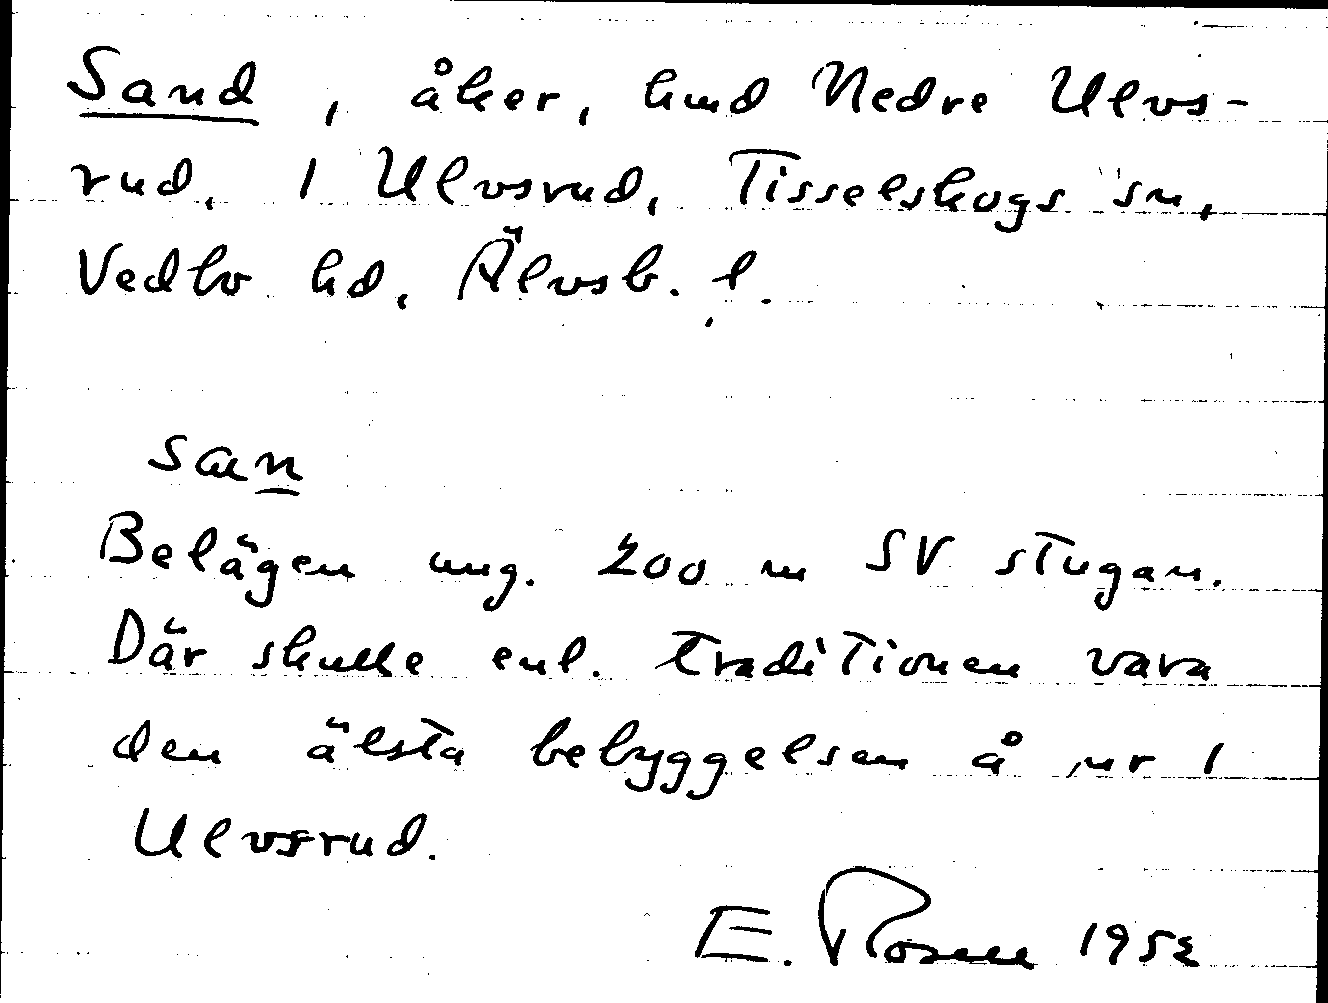 Sand, åker, hmd Nedre Ulvs-
rud, 1 Ulvsrud, Tisselskogs sn,
Vedbo hd, Älvsb. l.
san
Belägen ung. 200 m SV stugan.
Där skulle enl. traditionen vara
den älsta bebyggelsen å nr 1
Ulvsrud.
E. Rosen 1952